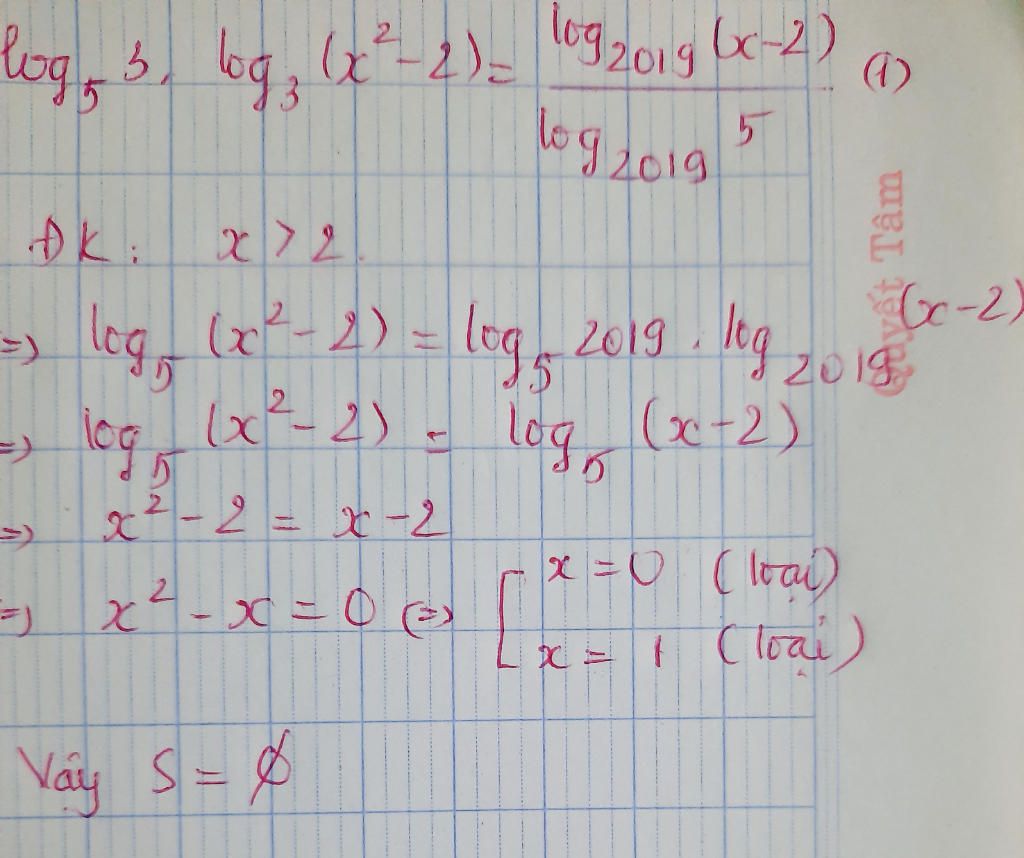 log₅ 3 . log₃ (x² - 2) = log₂₀₁₉ (x-2) / log₂₀₁₉ 5 (1)
ĐK : x > 2.
=> log₅ (x² - 2) = log₅ 2019 . log₂₀₁₉ (x-2)
=> log₅ (x² - 2) = log₅ (x-2)
=> x² - 2 = x - 2
=> x² - x = 0 (=> [ x = 0 (loại)
x = 1 (loại)
Vậy S = ∅
Quyết Tâm